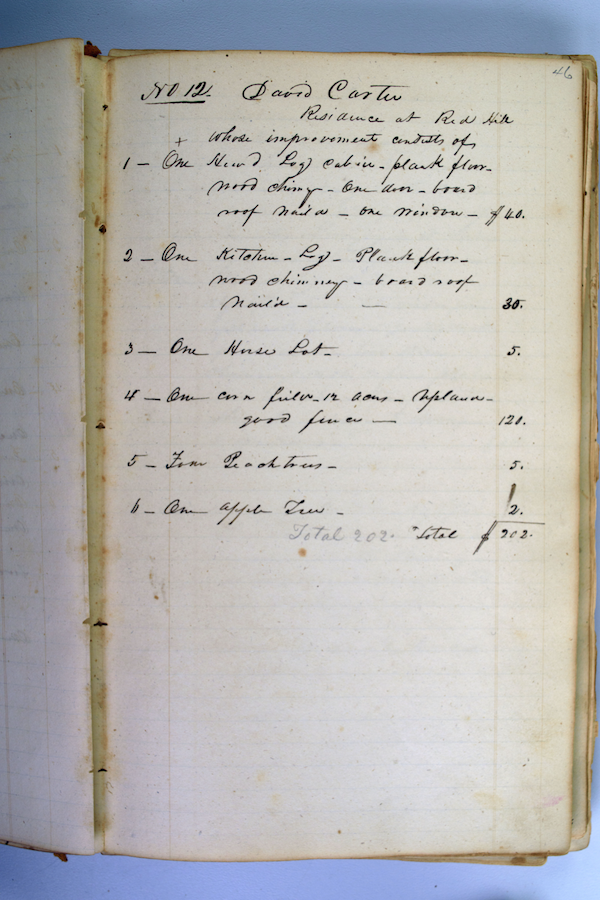 46
No 12. David Carter
Residence at Red Hill
+ whose improvement consists of
1 - One Hew'd Log cabin - plank floor -
wood chimy - One door - board
roof nail'd - one window - $ 40.
2 - One Kitchen - Log - Plank floor -
wood chimney - board roof
nail'd - — 30.
3 - One Horse Lot - 5.
4 - One corn field - 12 acres - upland -
good fence — 120.
5 - Four Peachtrees - 5.
6 - One apple Tree - 2.
Total 202. Total $ 202.